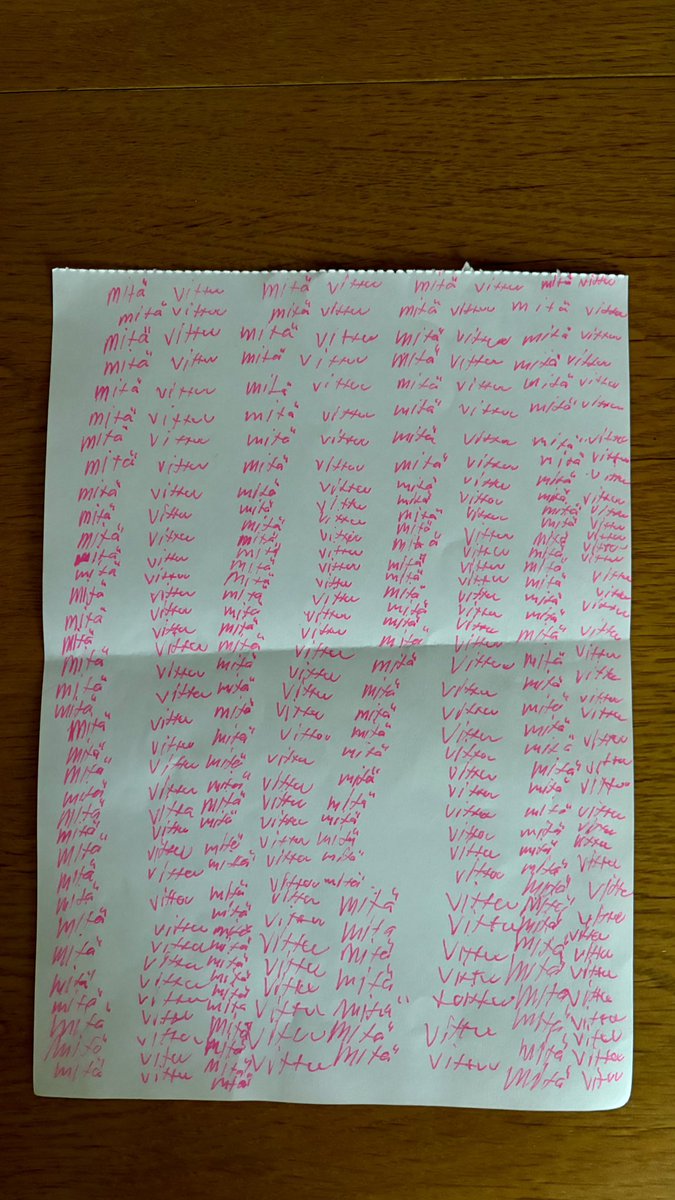 mitä vittu mitä vittu mitä vittu mitä vittu
mitä vittu mitä vittu mitä vittu mitä vittu
mitä vittu mitä vittu mitä vittu mitä vittu
mitä vittu mitä vittu mitä vittu mitä vittu
mitä vittu mitä vittu mitä vittu mitä vittu
mitä vittu mitä vittu mitä vittu mitä vittu
mitä vittu mitä vittu mitä vittu mitä vittu
mitä vittu mitä vittu mitä vittu mitä vittu
mitä vittu mitä vittu mitä vittu mitä vittu
mitä vittu mitä vittu mitä vittu mitä vittu
mitä vittu mitä vittu mitä vittu mitä vittu
mitä vittu mitä vittu mitä vittu mitä vittu
mitä vittu mitä vittu mitä vittu mitä vittu
mitä vittu mitä vittu mitä vittu mitä vittu
mitä vittu mitä vittu mitä vittu mitä vittu
mitä vittu mitä vittu mitä vittu mitä vittu
mitä vittu mitä vittu mitä vittu mitä vittu
mitä vittu mitä vittu mitä vittu mitä vittu
mitä vittu mitä vittu mitä vittu mitä vittu
mitä vittu mitä vittu mitä vittu mitä vittu
mitä vittu mitä vittu mitä vittu mitä vittu
mitä vittu mitä vittu mitä vittu mitä vittu
mitä vittu mitä vittu mitä vittu mitä vittu
mitä vittu mitä vittu mitä vittu mitä vittu
mitä vittu mitä vittu mitä vittu mitä vittu
mitä vittu mitä vittu mitä vittu mitä vittu
mitä vittu mitä vittu mitä vittu mitä vittu
mitä vittu mitä vittu mitä vittu mitä vittu
mitä vittu mitä vittu mitä vittu mitä vittu
mitä vittu mitä vittu mitä vittu mitä vittu
mitä vittu mitä vittu mitä vittu mitä vittu
mitä vittu mitä vittu mitä vittu mitä vittu
mitä vittu mitä vittu mitä vittu mitä vittu
mitä vittu mitä vittu mitä vittu mitä vittu
mitä vittu mitä vittu mitä vittu mitä vittu